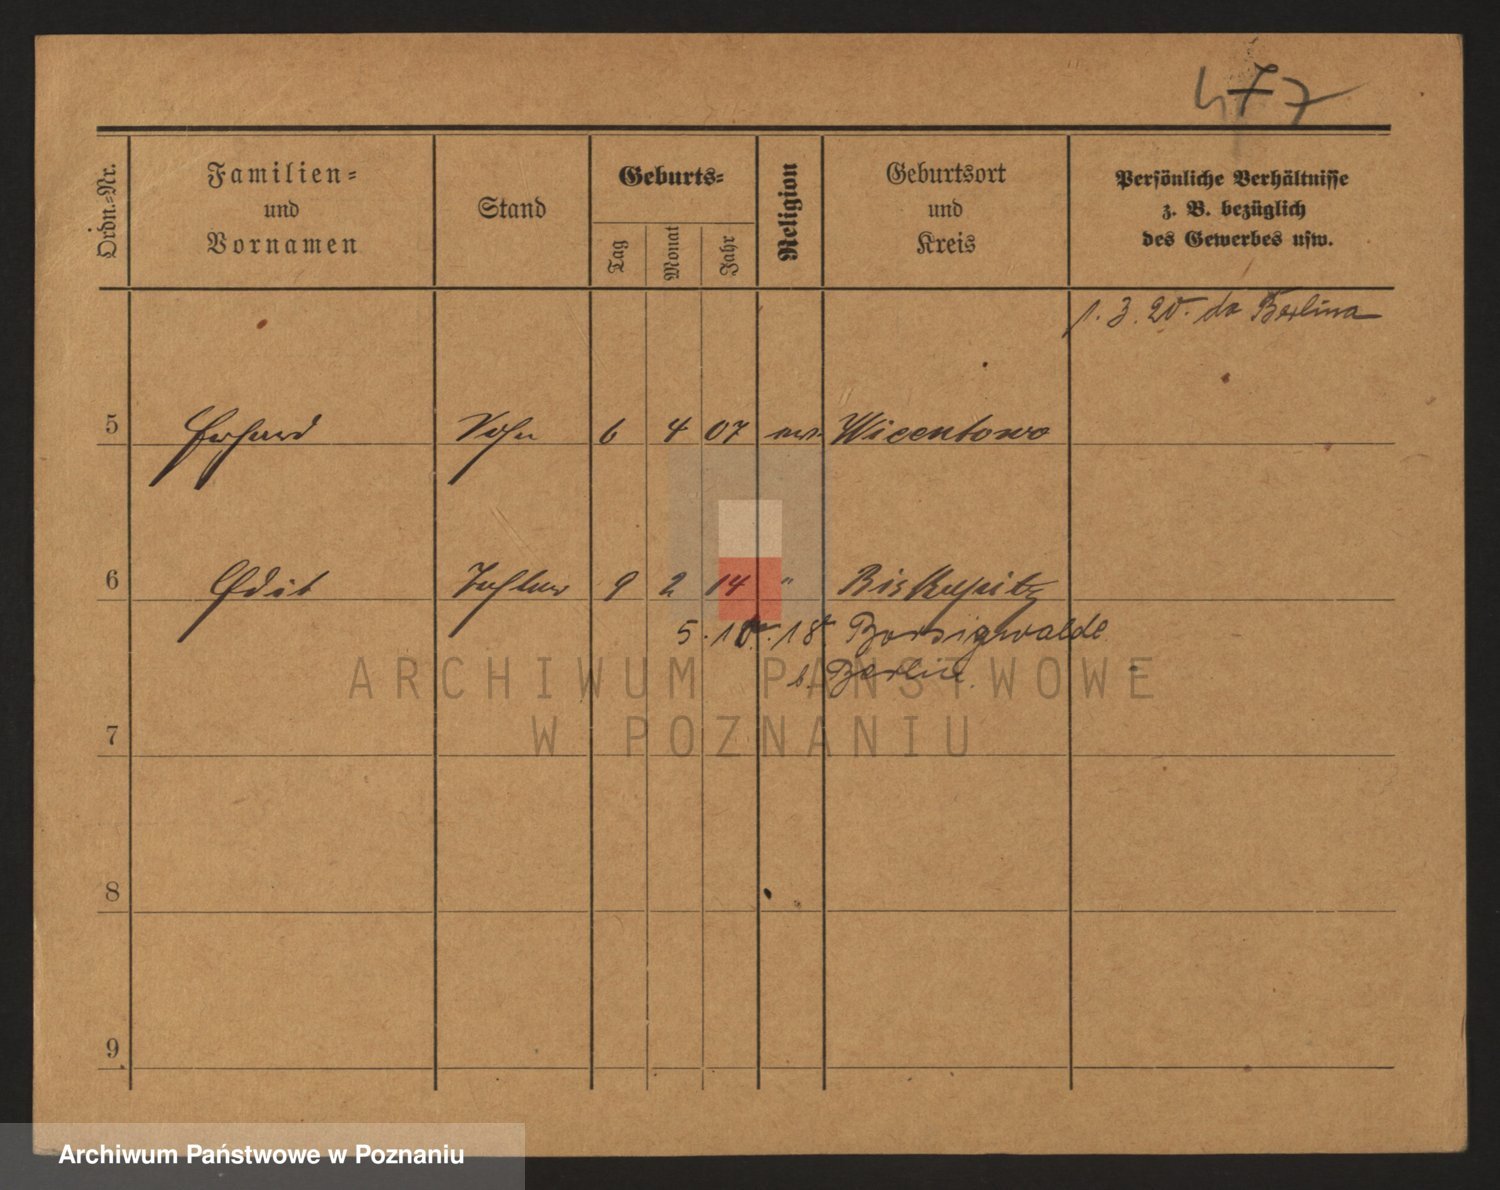 477
Ordn.-Nr.
Familien-
und
Vornamen
Stand
Geburts-
Tag
Monat
Jahr
Religion
Geburtsort
und
Kreis
Persönliche Verhältnisse
z. B. bezüglich
des Gewerbes usw.
1. 3. 20. do Berlina
5 Gerhard Sohn 6 4 07 ev. Wicentowo
6 Edit Tochter 9 2 14 " Biskupitz
5. 10. 18 Borsigwalde
b. Berlin.
ARCHIWUM PAŃSTWOWE
W POZNANIU
7
8
9
Archiwum Państwowe w Poznaniu